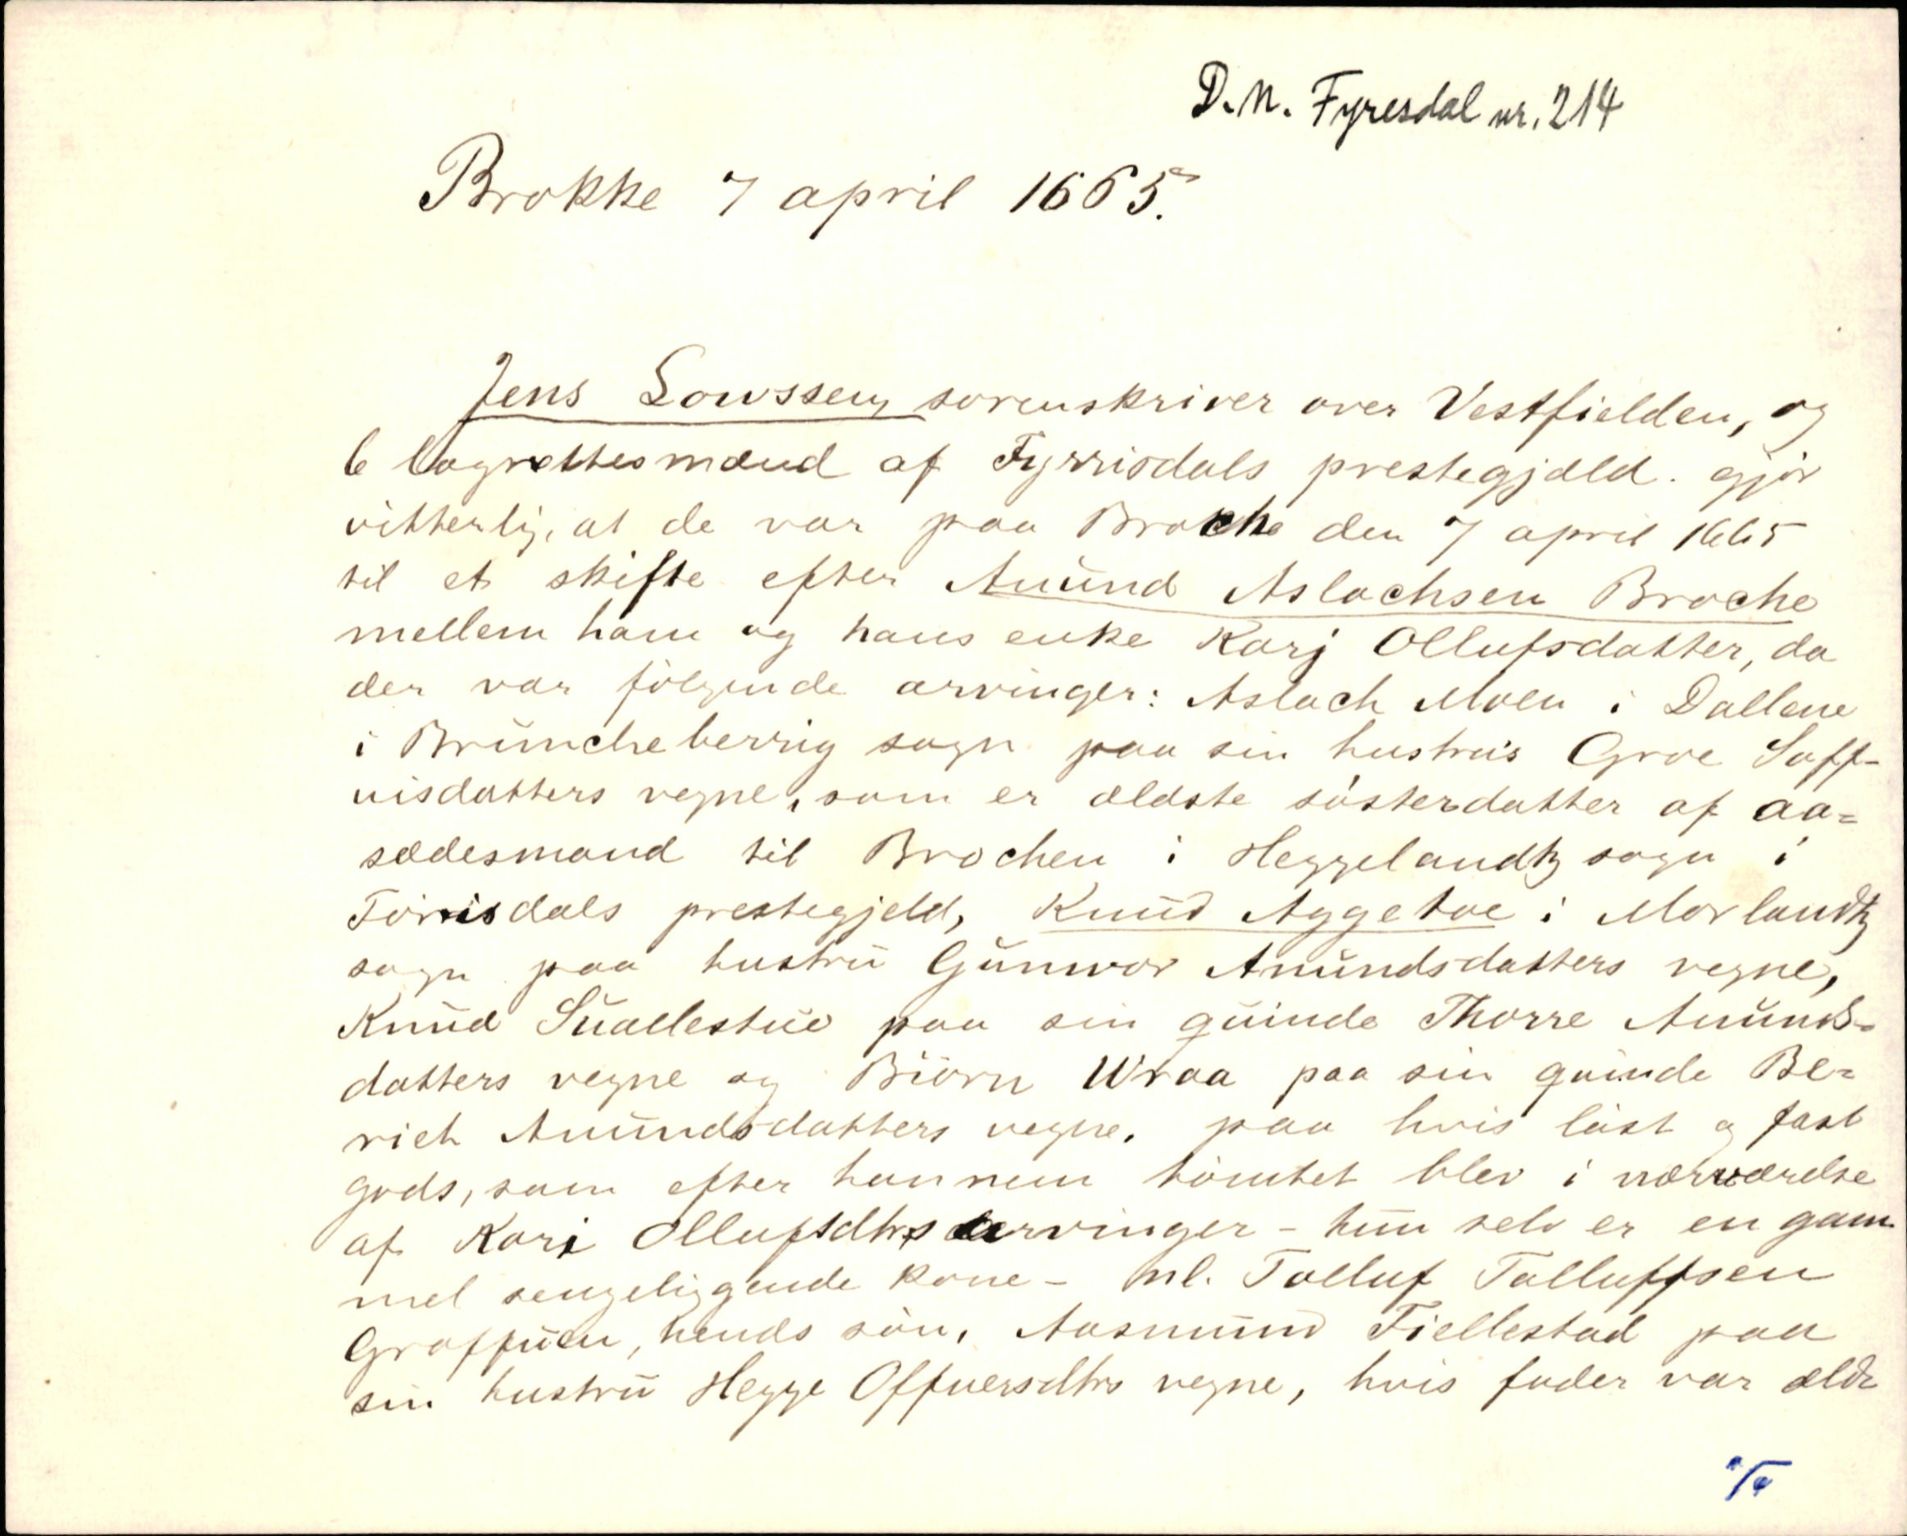 D. N. Fyresdal nr. 214
Brokke 7 april 1665.
Jens Lowssen, sorenskriver over Vestfielden, og
6 lagrettesmænd af Fyrrisdals prestegjæld. gjör
vitterlig, at de var paa Broche den 7 april 1665
til et skifte efter Anund Aslachsen Broche
mellem ham og hans enke Karj Ollufsdatter, da
der var fölgende arvinger: Aslach Moen i Dallene
i Brüncheberrig sogn paa sin hustrus Groe Saff-
uisdatters vegne, som er ældste sösterdatter af aa=
sædesmand til Brochen i Heggelandtz sogn i
Förrisdals prestegjeld, Knud Aggetve i Morlandtz
sogn paa hustrü Günvor Anündsdatters vegne,
Knud Süallestüe paa sin qüinde Thorre Anünds-
datters vegne og Biörn Wraa paa sin qüinde Be=
rich Anündsdatters vegne, paa hvis löst og fast
gods, som efter hannem tömtet blev i nærværelse
af Kari Ollufsdtrs arvinger - hun selv er en gam
mel sengeliggende kone - nl. Tolluf Tolluffsen
Groffuen, hends sön, Aasmund Fiellestad paa
sin hustrü Hegge Offuersdtrs vegne, hvis fader var eldr